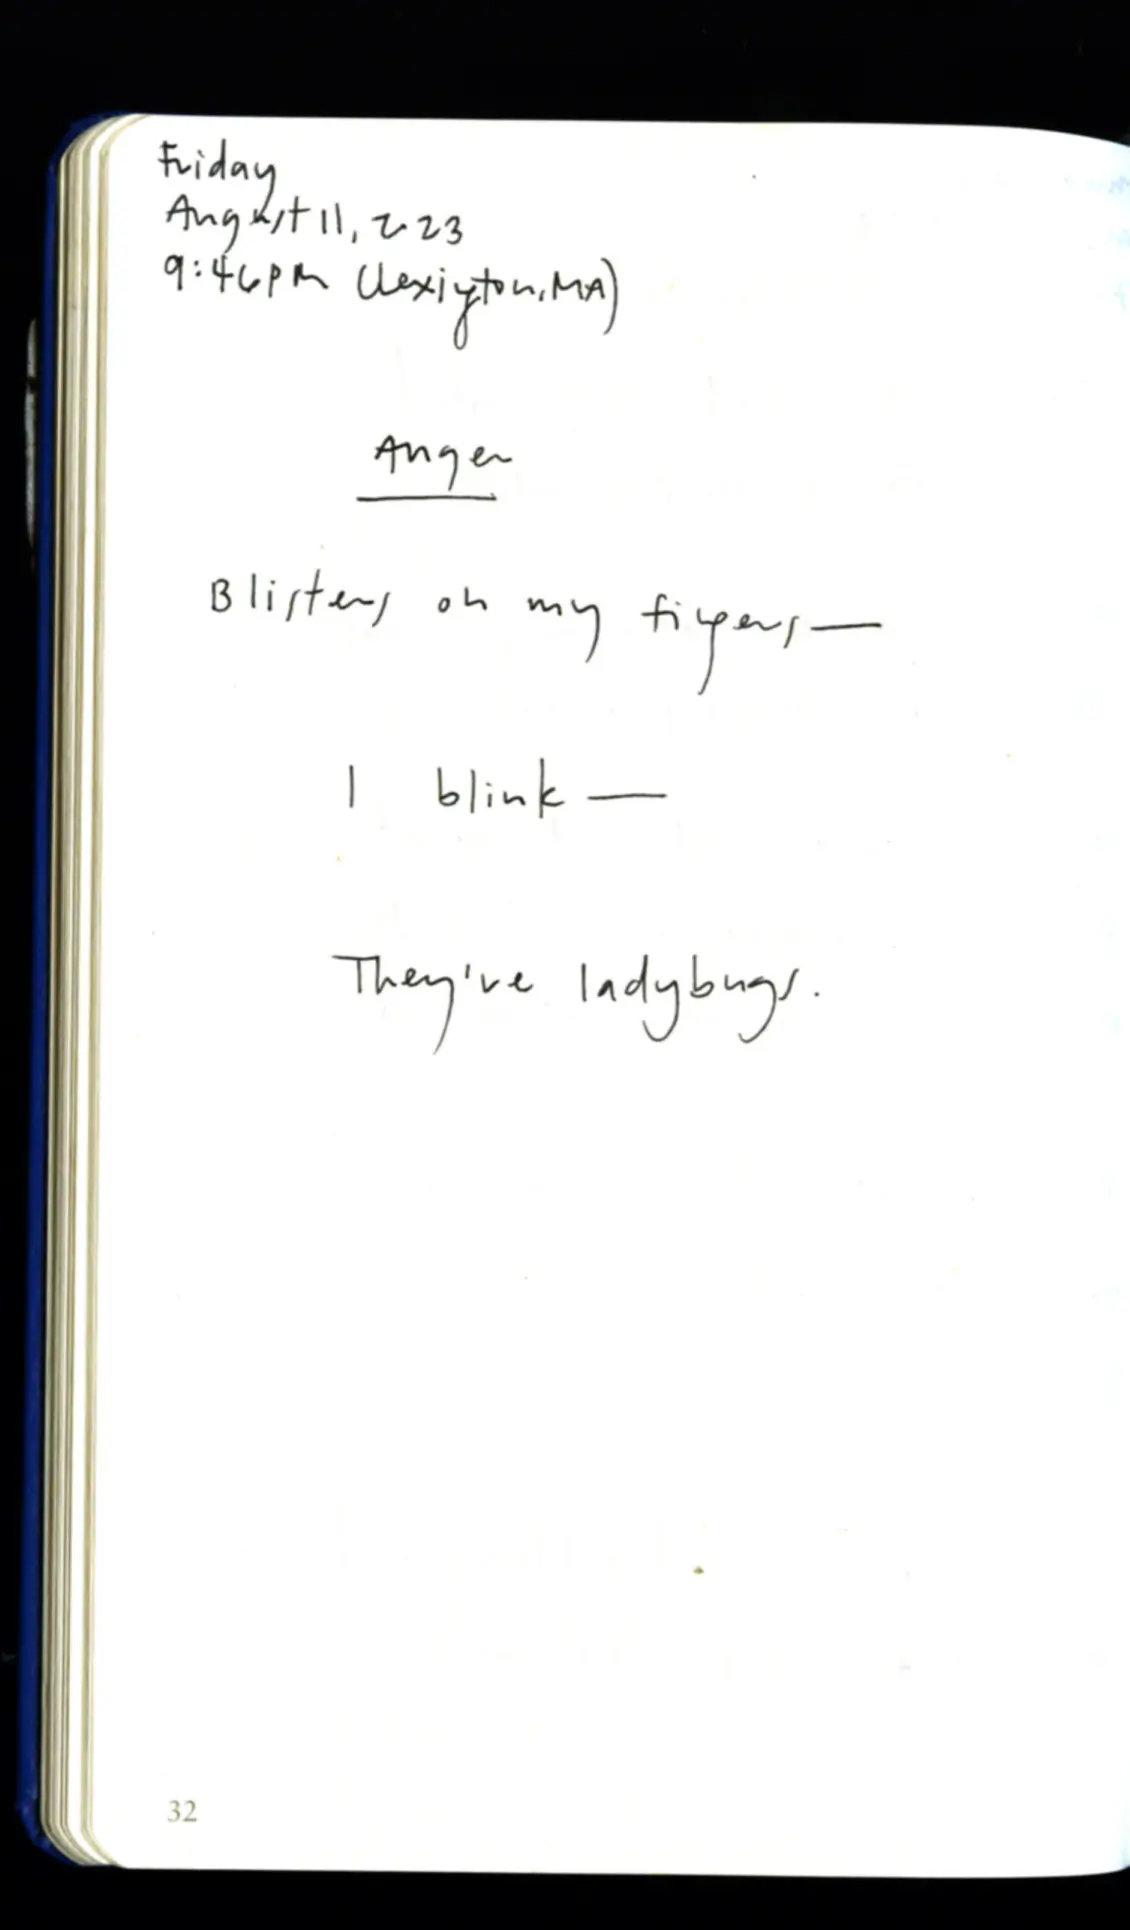 Friday
August 11, 2023
9:46pm (Lexington, MA)
Anger
Blisters on my fingers—
I blink—
They're ladybugs.
32